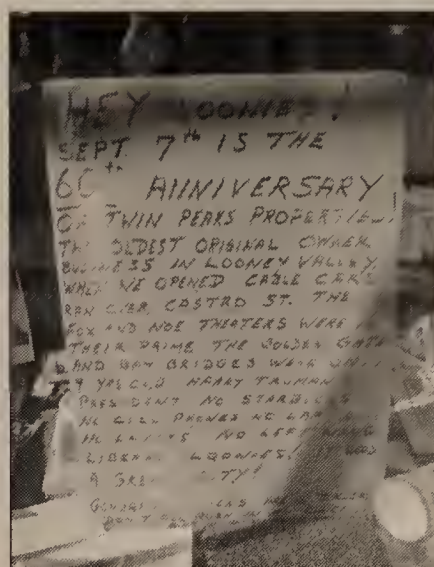 HEY LOONIES!
SEPT. 7th IS THE
60th ANNIVERSARY
OF TWIN PEAKS PROPERTIES!
THE OLDEST ORIGINAL OWNER
BUSINESS IN LOONEY VALLEY.
WHEN WE OPENED CABLE CARS
RAN OVER CASTRO ST. THE
FOX AND NOE THEATERS WERE IN
THEIR PRIME THE GOLDEN GATE
AND BAY BRIDGES WERE ONLY
9 YRS OLD HARRY TRUMAN
PRESIDENT NO STARBUCKS
NO CELL PHONES NO
NO NO LEFT WING
LIBERAL LOONIES! IT WAS
A GREAT CITY!
DON'T